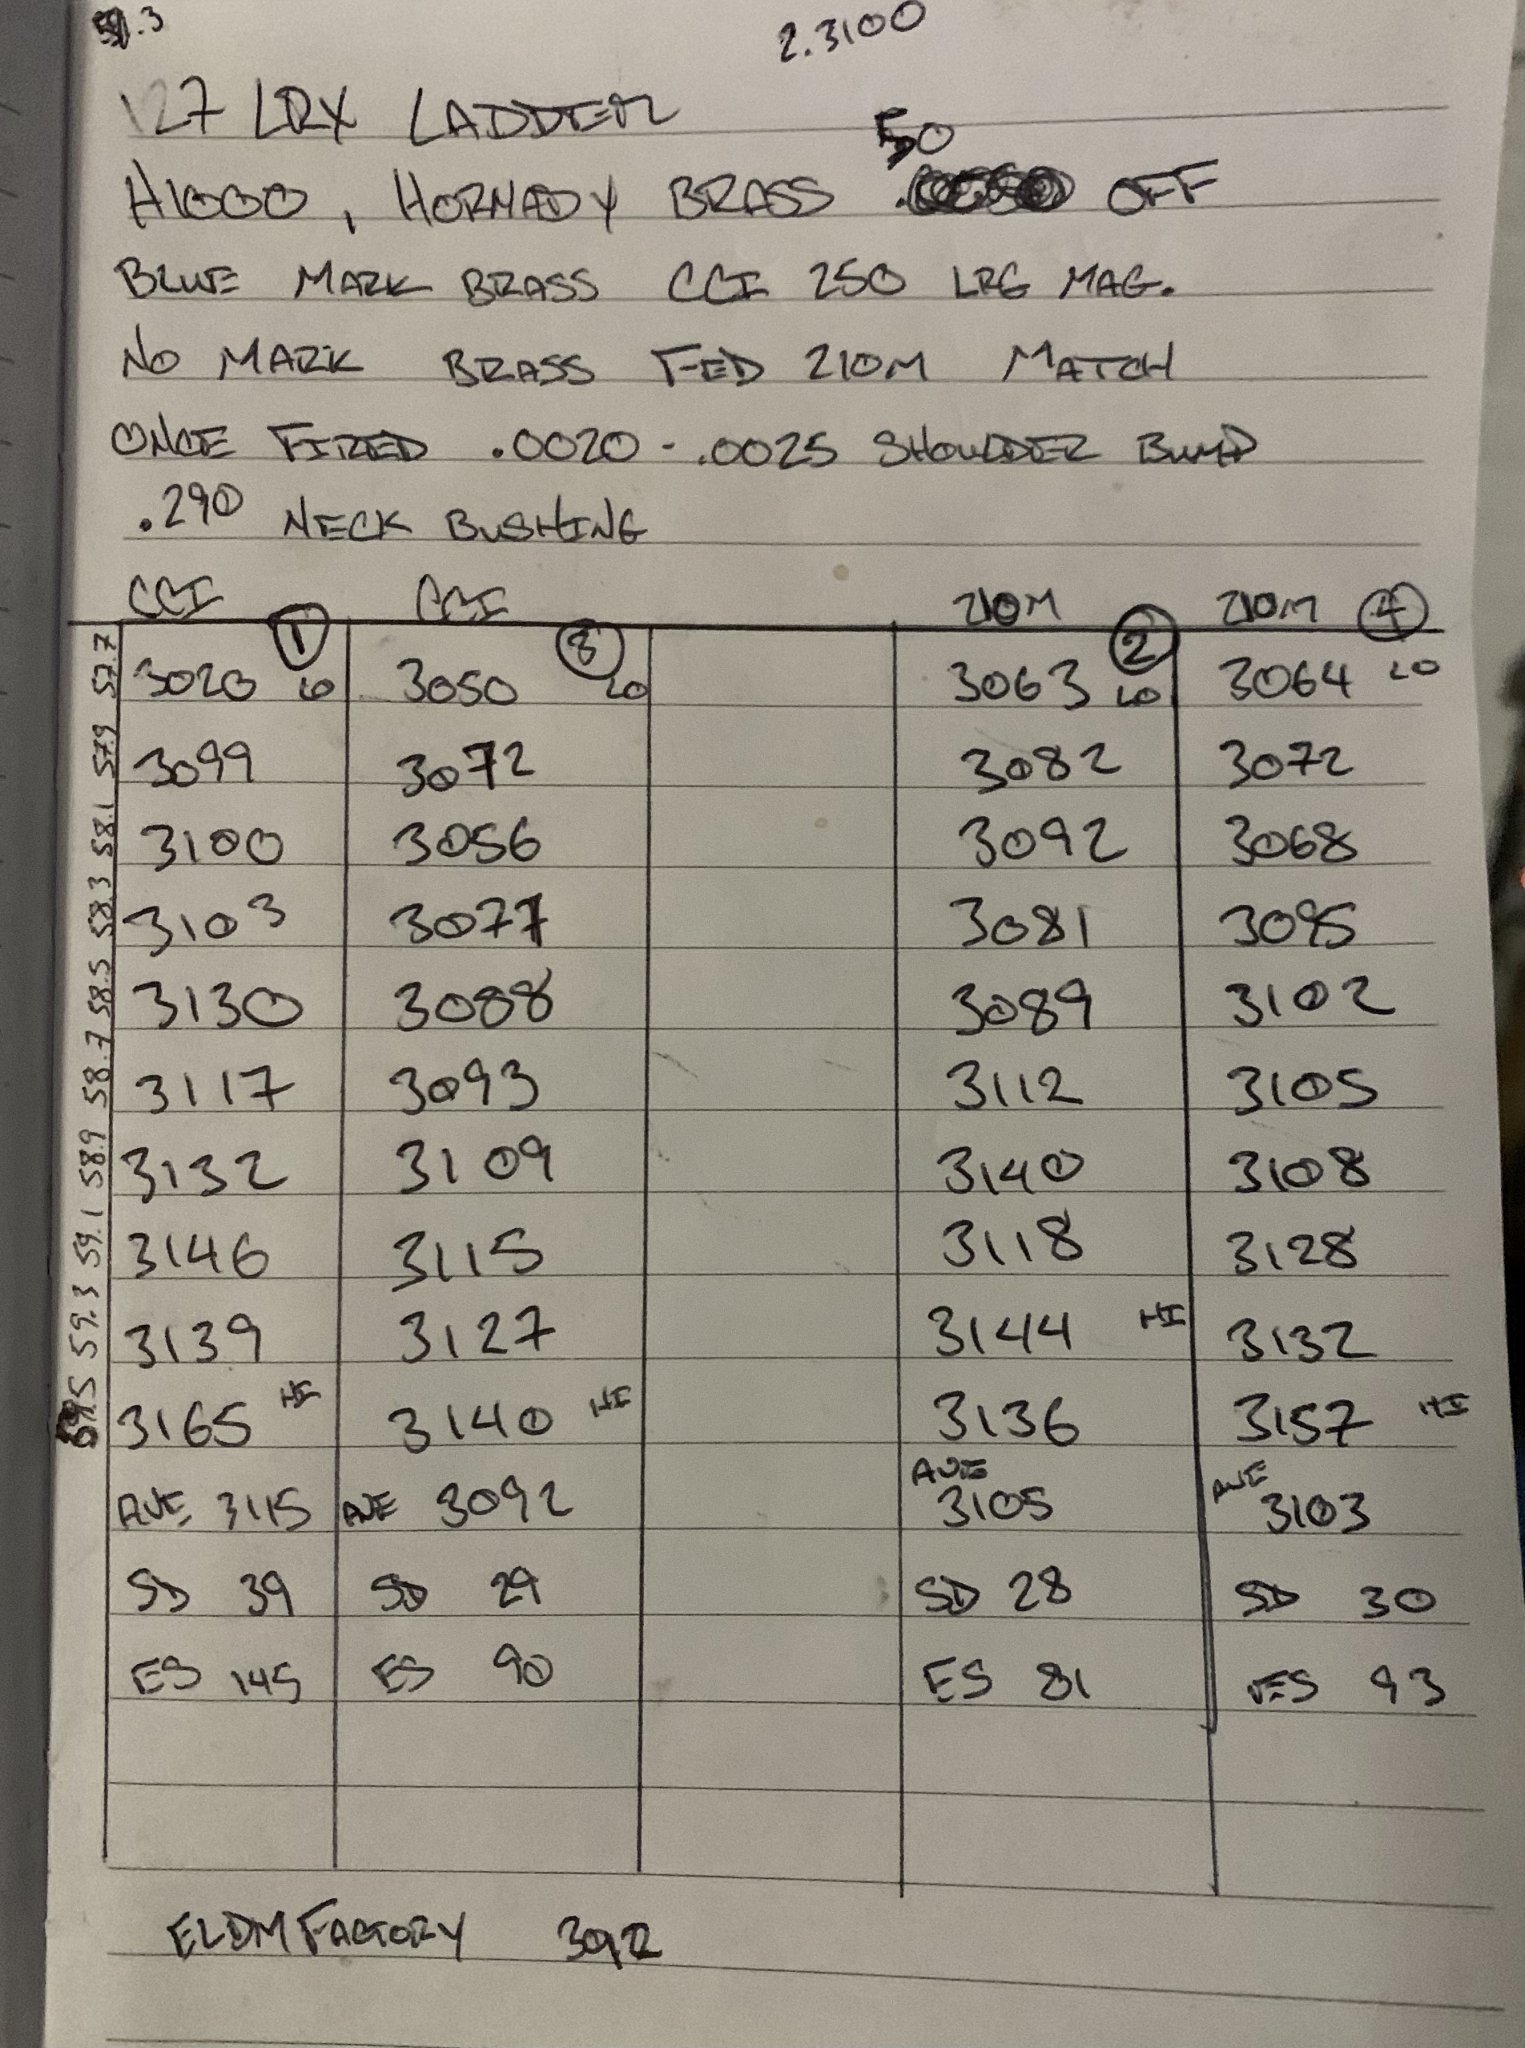 59.3 2.3100
127 LRX LADDER
50
H1000, HORNADY BRASS OFF
BLUE MARK BRASS CCI 250 LRG MAG.
NO MARK BRASS FED 210M MATCH
ONCE FIRED .0020 - .0025 SHOULDER BUMP
.290 NECK BUSHING
CCI 1 CCI 3 210M 2 210M 4
57.7 3020 LO 3050 LO 3063 LO 3064 LO
57.9 3099 3072 3082 3072
58.1 3100 3056 3092 3068
58.3 3103 3077 3081 3095
58.5 3130 3088 3089 3102
58.7 3117 3093 3112 3105
58.9 3132 3109 3140 3108
59.1 3146 3115 3118 3128
59.3 3139 3127 3144 HI 3132
59.5 3165 HI 3140 HI 3136 3157 HI
AVE 3115 AVE 3092 AVE 3105 AVE 3103
SD 39 SD 29 SD 28 SD 30
ES 145 ES 90 ES 81 ES 93
ELDM FACTORY 3092